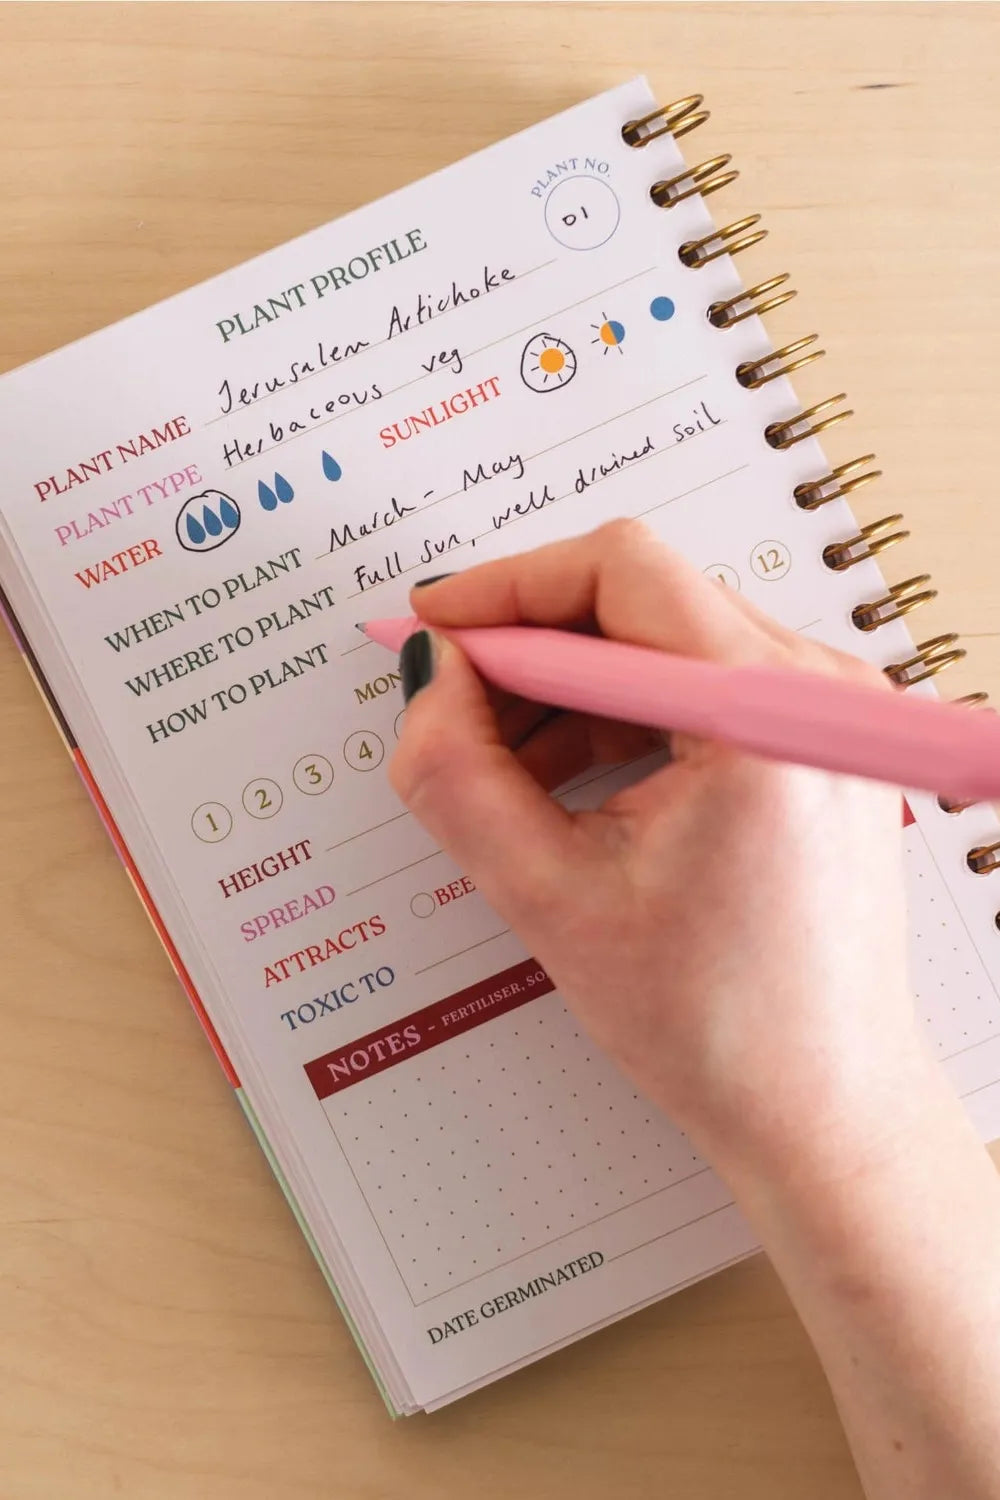 PLANT NO.
01
PLANT PROFILE
PLANT NAME Jerusalem Artichoke
PLANT TYPE Herbaceous veg
WATER SUNLIGHT
WHEN TO PLANT March - May
WHERE TO PLANT Full sun, well drained soil
HOW TO PLANT
1 2 3 4 12
HEIGHT
SPREAD
ATTRACTS BEE
TOXIC TO
NOTES - FERTILISER,
DATE GERMINATED